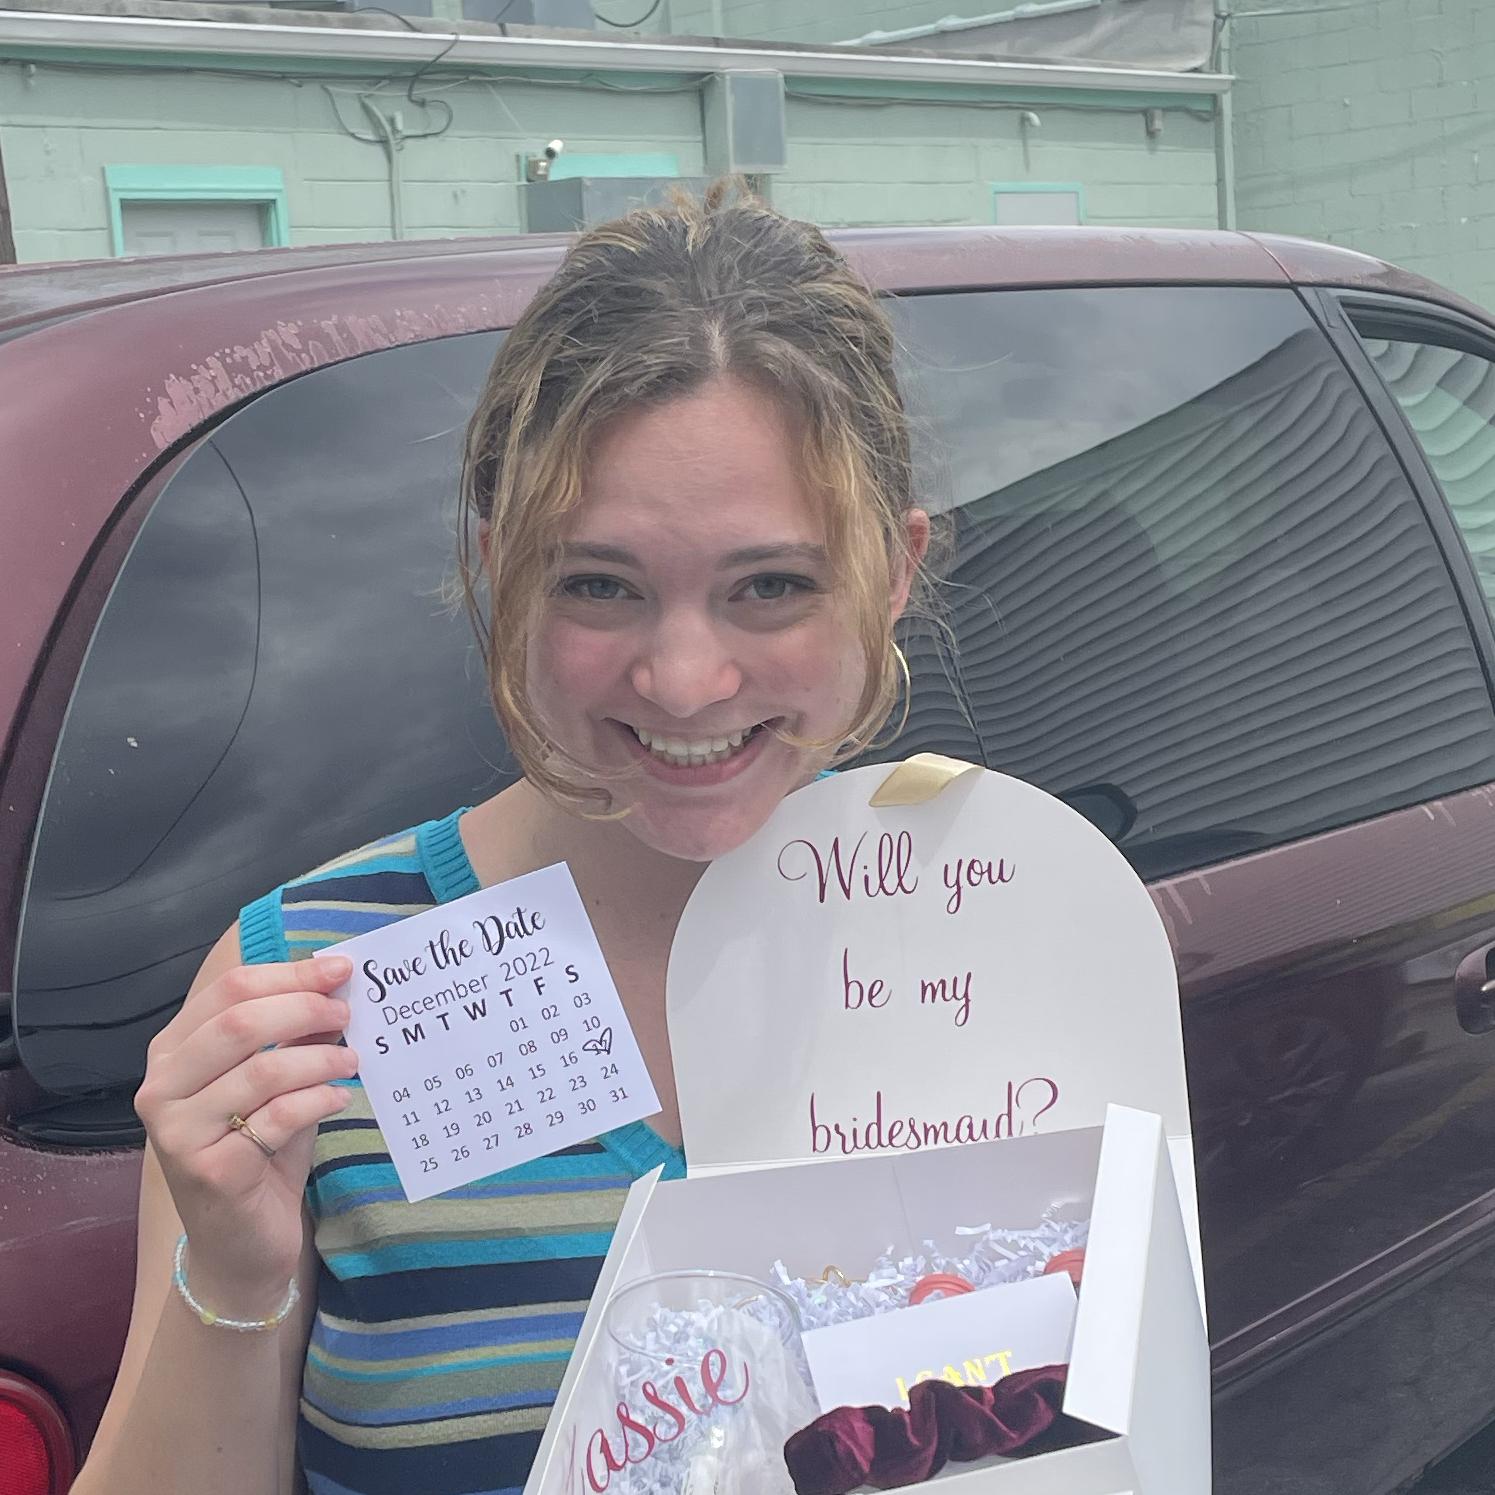 Save the Date
December 2022
S M T W T F S
01 02 03
04 05 06 07 08 09 10
11 12 13 14 15 16 17
18 19 20 21 22 23 24
25 26 27 28 29 30 31
Will you
be my
bridesmaid?
I CAN'T
assie